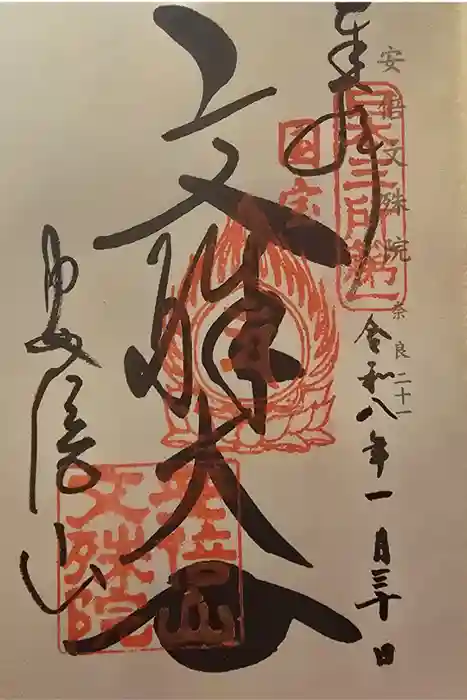 安倍文殊院 奈良二十一
奉拝
日本三文殊第一
令和八年一月三十日
国宝
文殊大士
安倍山
安倍山
文殊院